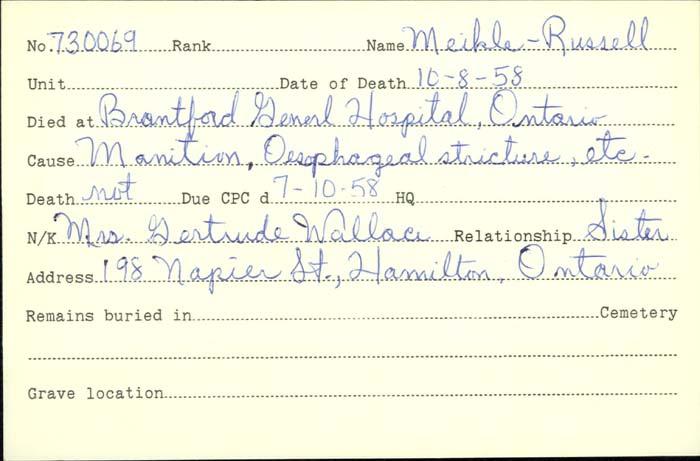 No. 730069 Rank Name Meikle-Russell
Unit Date of Death 10-8-58
Died at Brantford Generl Hospital, Ontario
Cause Manition, Oesophageal stricture, etc.
Death not Due CPC d 7-10-58 HQ
N/K Mrs. Gertrude Wallace Relationship Sister
Address 198 Napier St., Hamilton, Ontario
Remains buried in Cemetery
Grave location